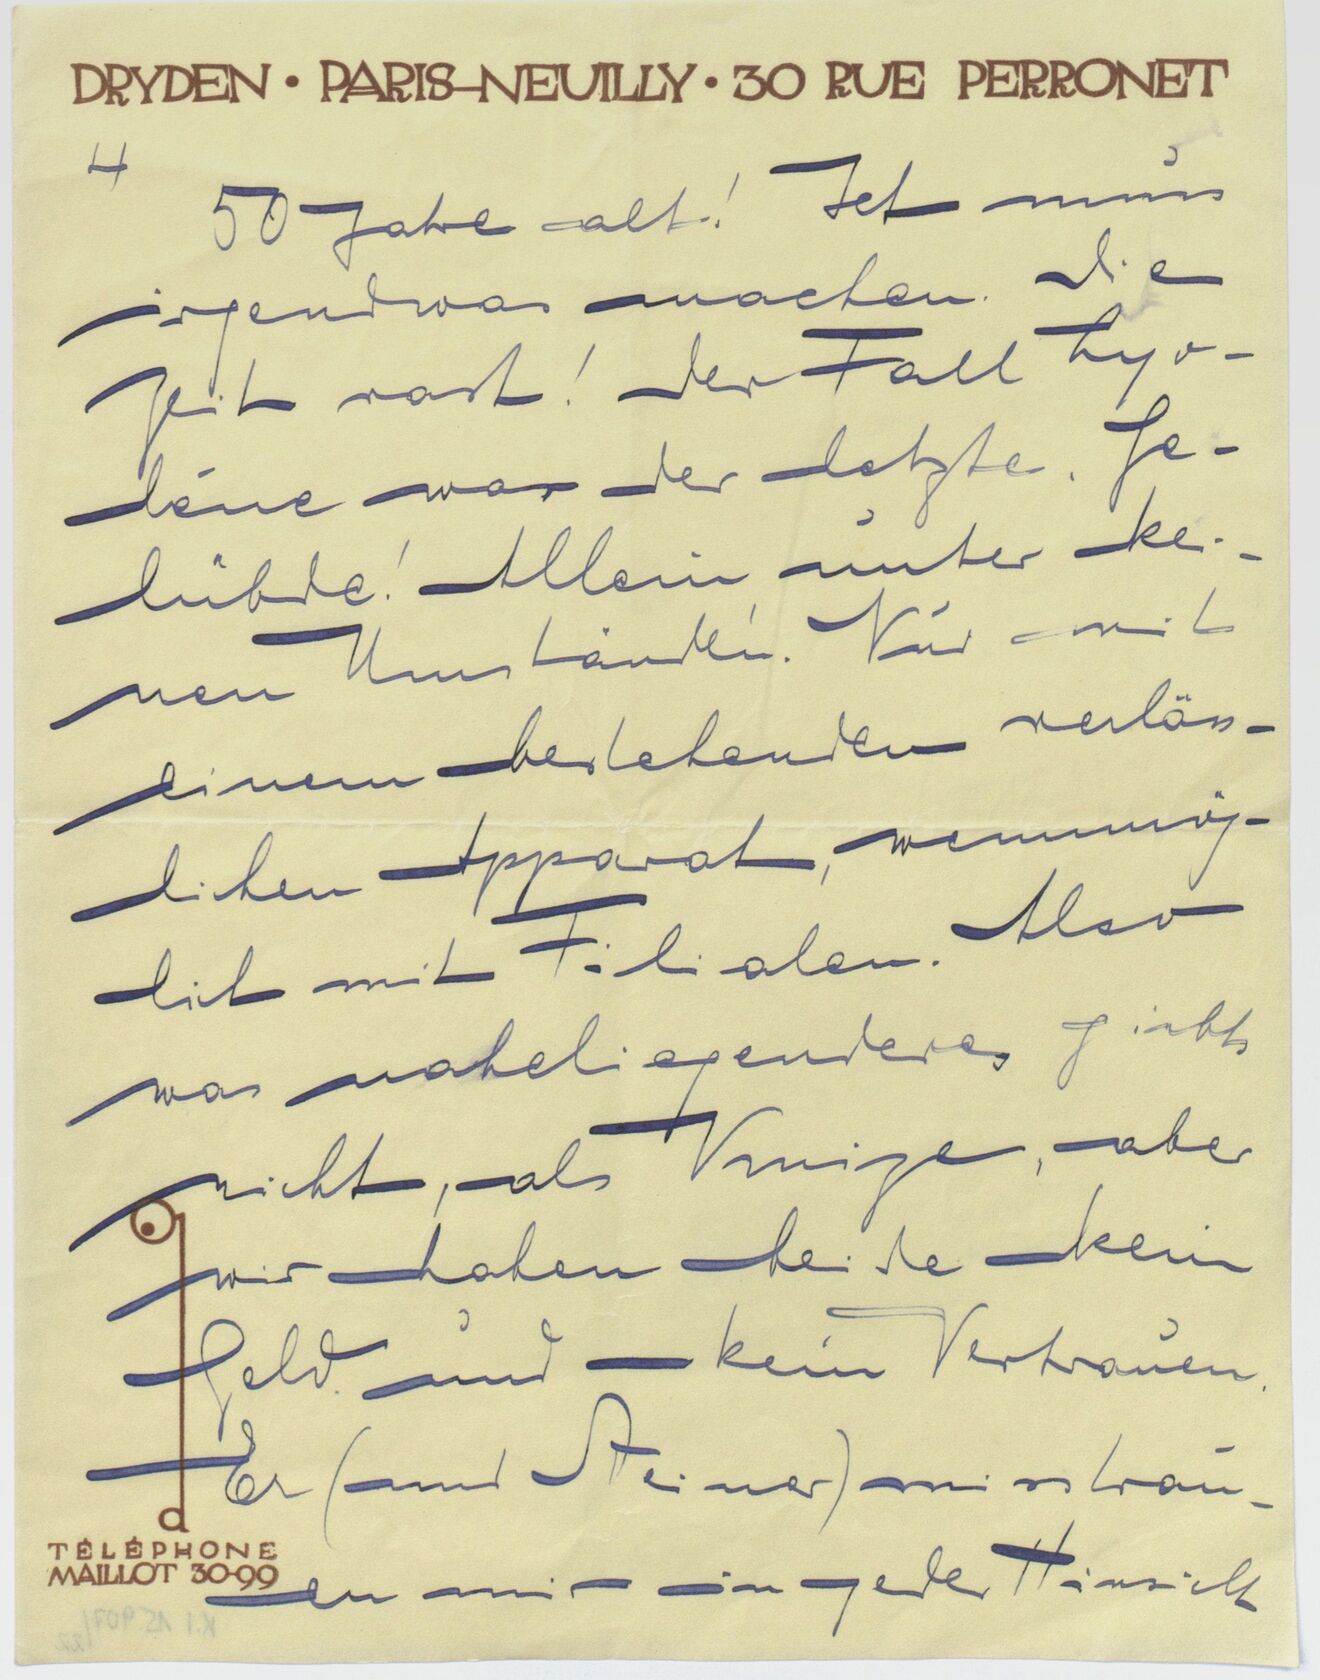 DRYDEN • PARIS-NEUILLY • 30 RUE PERRONET
4
50 Jahre alt! Ich muss
irgendwas machen. Die
Zeit rast! Der Fall Hyo-
léne war der letzte. Ge-
lübde! Allein unter kei-
nen Umständen. Nur mit
einem bestehenden verläss-
lichen Apparat, wennmög-
lich mit Filialen. Also
was naheliegenderes giebts
nicht, als, aber
wir haben beide kein
Geld und kein Vertrauen.
Er (und Steiner) misstrau-
en mir in jeder Hinsicht
d
TÉLÉPHONE
MAILLOT 30-99